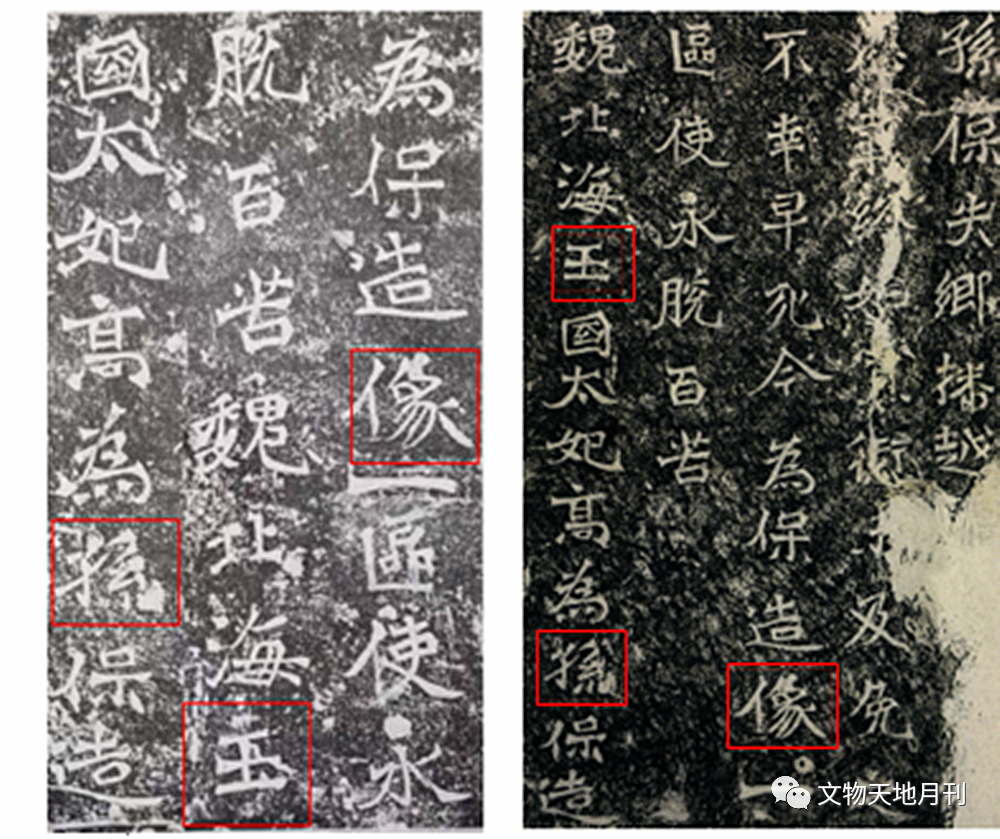 為保造像一區使永
脫百苦魏北海王
國太妃高為孫保造
孫保失鄉播越
終及免
不幸早死今為保造像一
區使永脫百苦
魏北海王國太妃高為孫保造
文物天地月刊